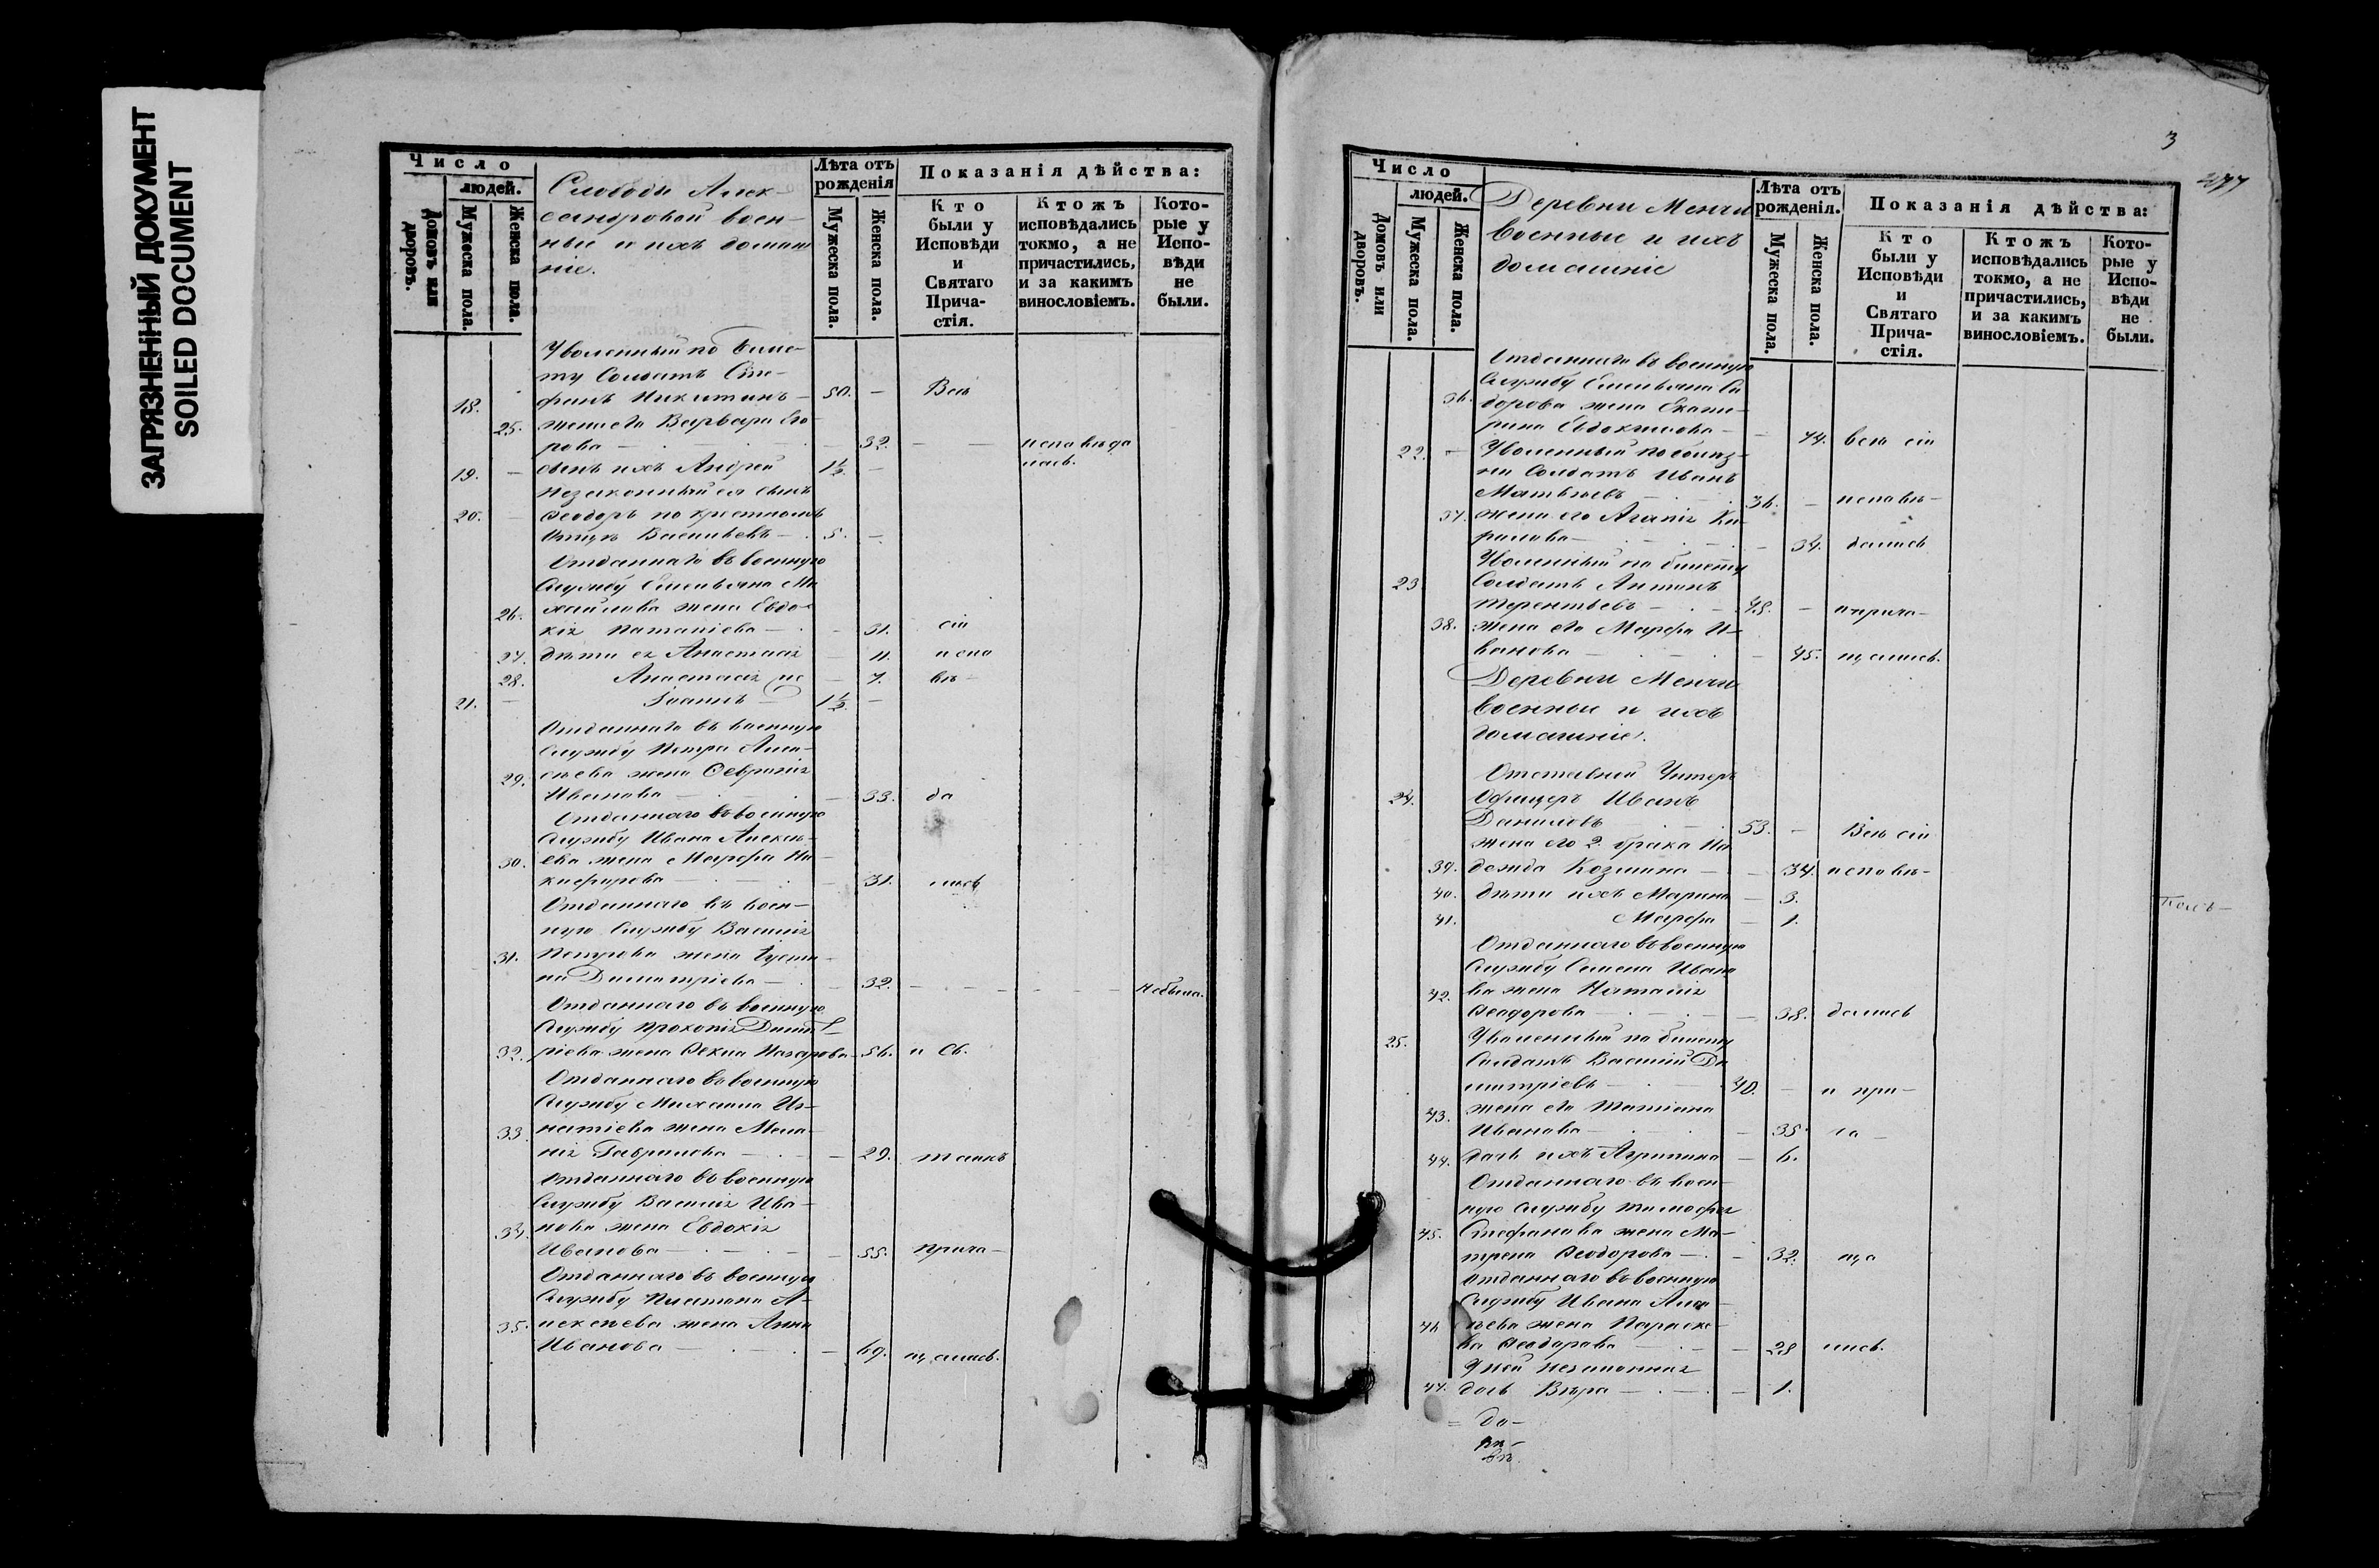 ЗАГРЯЗНЕННЫЙ ДОКУМЕНТ
SOILED DOCUMENT
Число
людей.
Домовъ или дворовъ.
Мужеска пола.
Женска пола.
Слободы Алек-
сандровой воен-
ные и ихъ домаш
ніе.
Лѣта отъ
рожденія
Мужеска пола.
Женска пола.
Показанія дѣйства:
Кто
были у
Исповѣди
и
Святаго
Прича-
стія.
Ктожъ
исповѣдались
токмо, а не
причастились,
и за какимъ
винословіемъ.
Кото-
рые у
Испо-
вѣди
не
были.
Уволенный по биле-
ту Солдатъ Сте-
18. фанъ Никитинъ - 50. - Всѣ
25. жена его Варвара Его
рова - 32. - - исповѣда
19. - сынъ ихъ Андрей 1½ - лась.
Незаконный ея сынъ
20. - Ѳеодоръ по крестному
Отцу Васильевъ - 5. -
Отданнаго въ военную
Службу Емельяна Ми
26. хайлова жена Евдо-
кія - 31. сіи
27. дѣти ея Анастасія - 11. испо
28. Анастасія - 7. вѣ-
21. - Іоаннъ - 1½ -
Отданнаго въ военную
Службу Петра Алек-
29. сѣева жена Февронія
Иванова - 33. да
Отданнаго въ военную
Службу Ивана Алексѣ-
30. ева жена Марфа Ни-
кифорова - 31. лись
Отданнаго въ воен-
ную Службу Василія
31. Петрова жена Іусти-
на Димитріева - 32. - - - - - Небыла.
Отданнаго въ военную
Службу Прокопія Димит-
32. ріева жена Ѳекла Назарова - 56. и Св.
Отданнаго въ военную
Службу Михаила Иг-
33. натіева жена Мела-
нія Гаврилова - 29. таинъ
Отданнаго въ военную
Службу Василія Ива-
34. нова жена Евдокія
Иванова - 55. прича-
Отданнаго въ военную
Службу Платона А-
35. лексѣева жена Анна
Иванова - 69. щались.
3
Число
людей.
Домовъ или дворовъ.
Мужеска пола.
Женска пола.
Деревни Менчи
военные и ихъ
домашніе
Лѣта отъ
рожденія.
Мужеска пола.
Женска пола.
Показанія дѣйства:
Кто
были у
Исповѣди
и
Святаго
Прича-
стія.
Ктожъ
исповѣдались
токмо, а не
причастились,
и за какимъ
винословіемъ.
Кото-
рые у
Испо-
вѣди
не
были.
Отданнаго въ военную
Службу Емельяна Си
36. дорова жена Екате-
рина Евдокимова - 44. всѣ сіи
22. - Уволенный по болѣз-
ни Солдатъ Иванъ
Матвѣевъ - 36. - исповѣ-
37. жена его Агапія Ки-
рилова - 34. дались
Уволенный по билету
23 Солдатъ Антонъ
Терентьевъ - 48. - и прича-
38. жена его Марфа И-
ванова - 45. щались.
Деревни Менчи
военные и ихъ
домашніе.
Отставной Унтеръ
24. Офицеръ Иванъ
Даниловъ - 53. - Всѣ сіи
жена его 2. брака На
39. дежда Козмина - 34. исповѣ-
40. дѣти ихъ Марина - 3.
41. Марфа - 1.
Отданнаго въ военную
Службу Семена Ивано
42. ва жена Наталія
Ѳеодорова - 38. дались
25. Уволенный по билету
Солдатъ Василій Ди
митріевъ - 40. - и при-
43. жена его Татіана
Иванова - 35. ча-
44. дочь ихъ Агрипина - 6.
Отданнаго въ воен-
ную Службу Тимофея
45. Стефанова жена Ма-
трена Ѳеодорова - 32. ща
Отданнаго въ военную
Службу Ивана Алек-
46 сѣева жена Параске-
ва Ѳеодорова - 28 лись.
У ней незаконная
47. дочь Вѣра - 1.